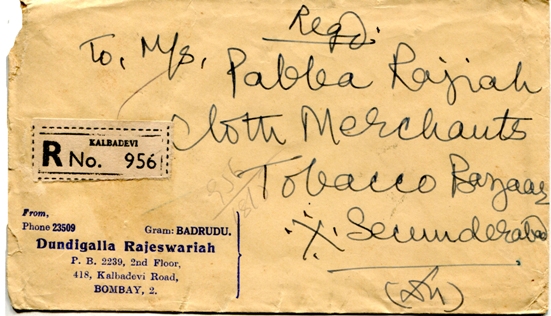 Regd.
To, M/s,
Pabba Rajiah
Cloth Merchants
Tobacco Bazaar
Secunderabad
KALBADEVI
R No. 956
956
From,
Phone 23509 Gram: BADRUDU.
Dundigalla Rajeswariah
P. B. 2239, 2nd Floor,
418, Kalbadevi Road,
BOMBAY, 2.